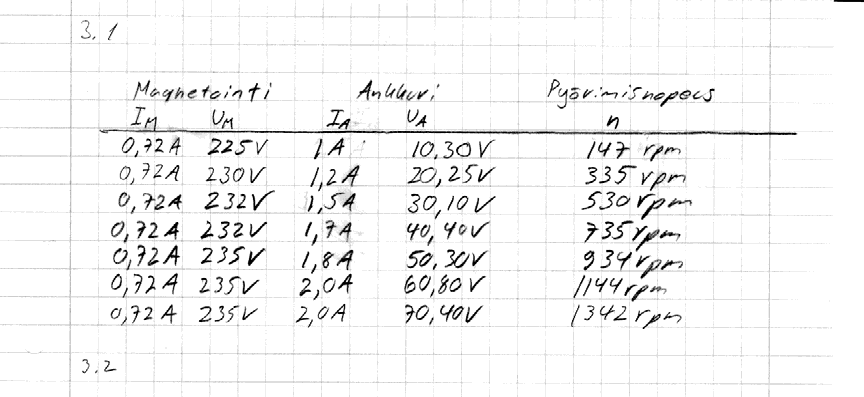 3.1
Magnetointi Ankkuri Pyörimisnopeus
IM UM IA UA n
0,72A 225V 1A 10,30V 147 rpm
0,72A 230V 1,2A 20,25V 335 rpm
0,72A 232V 1,5A 30,10V 530 rpm
0,72A 232V 1,7A 40,40V 735 rpm
0,72A 235V 1,8A 50,30V 934 rpm
0,72A 235V 2,0A 60,80V 1144 rpm
0,72A 235V 2,0A 70,40V 1342 rpm
3.2